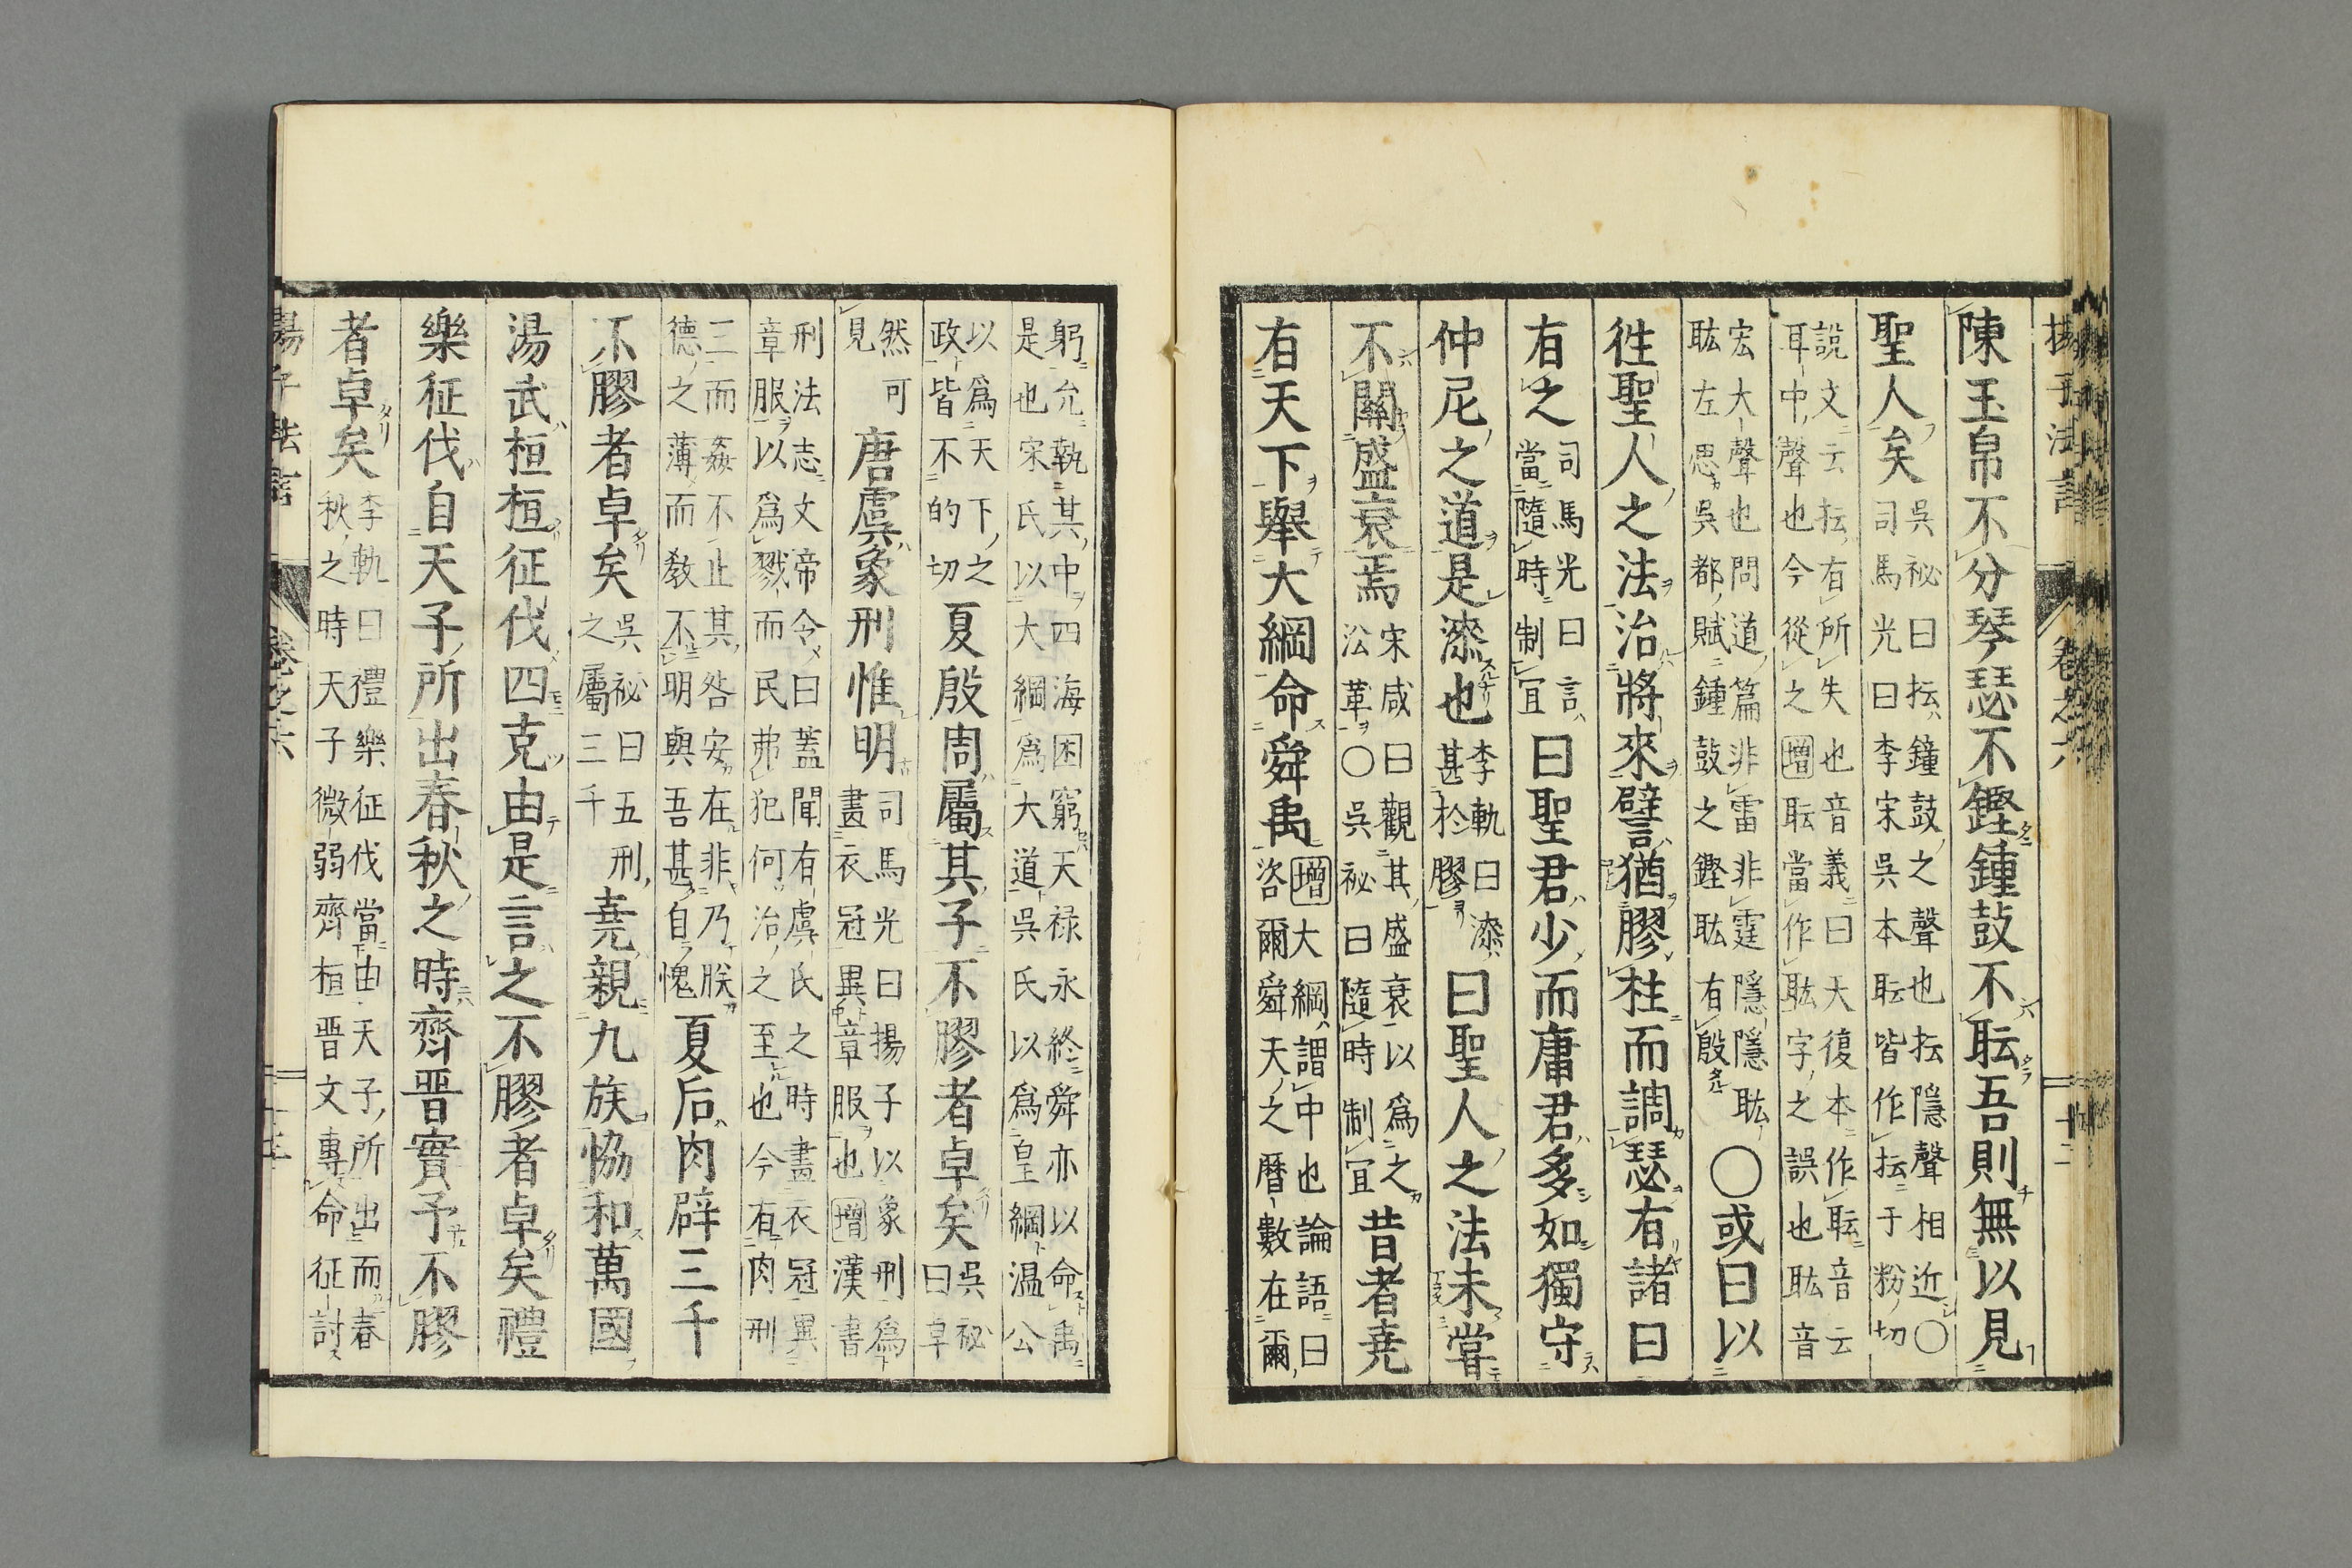 揚子法言 卷之六 十二
陳玉帛不分琴瑟不鏗鍾鼓不耺吾則無以見
聖人矣
吳祕曰抎鐘鼓之聲也抎隱聲相近○
司馬光曰李宋吳本耺皆作抎于粉切
說文云抎有所失也音義曰天復本作耺音云
耳中聲也今從之增耺當作耾字之誤也耾音
宏大聲也問道篇非雷非霆隱隱耾
耾左思吳都賦鍾鼓之鏗耾有殷
○或曰以
徃聖人之法治將來譬猶膠柱而調瑟有諸曰
有之
司馬光曰言
當隨時制宜
曰聖君少而庸君多如獨守
仲尼之道是漆也
李軌曰漆
甚於膠
曰聖人之法未嘗
不關盛衰焉
宋咸曰觀其盛衰以爲之
㳂革○吳祕曰隨時制宜
昔者堯
有天下舉大綱命舜禹
增大綱謂中也論語曰
咨爾舜天之曆數在爾
躬允執其中四海困窮天禄永終舜亦以命禹
是也宋氏以大綱爲大道吳氏以爲皇綱温公
以爲天下之
政皆不的切
夏殷周屬其子不膠者卓矣
吳祕曰卓
然可
見
唐虞象刑惟明
司馬光曰揚子以象刑爲
畫衣冠異章服也增漢書
刑法志文帝令曰蓋聞有虞氏之時畫衣冠異
章服以爲戮而民弗犯何治之至也今有肉刑
三而姦不止其咎安在非乃朕
德之薄而敎不明與吾甚自愧
夏后肉辟三千
不膠者卓矣
吳祕曰五刑
之屬三千
堯親九族恊和萬國
湯武桓桓征伐四克由是言之不膠者卓矣禮
樂征伐自天子所出春秋之時齊晋實予不膠
者卓矣
李軌曰禮樂征伐當由天子所出而春
秋之時天子微弱齊桓晋文專命征討
揚子法言 卷之六